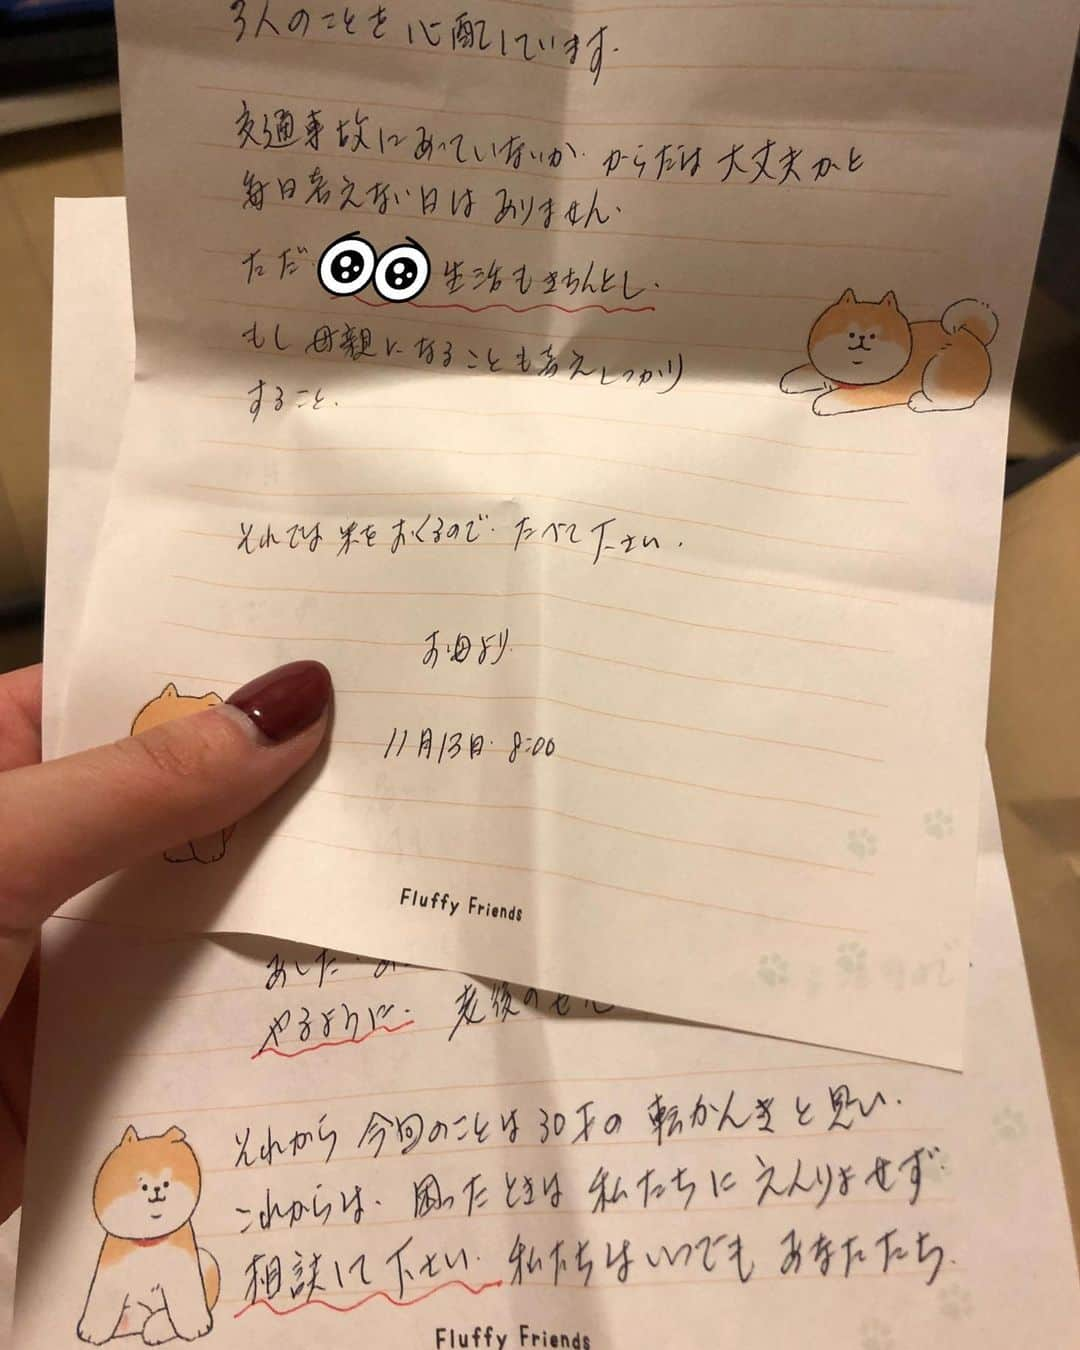 3人のことを心配しています.
交通事故にあっていないか. からだは大丈夫かと
毎日考えない日はありません.
ただ 生活もきちんとし.
もし母親になることも考えしっかり
すること.
それでは米をおくるので. たべて下さい.
お母より.
11月13日. 8:00
Fluffy Friends
あした.
やるように. 老後の
それから今回のことは30才の転かんきと思い.
これからは. 困ったときは私たちにえんりょせず
相談して下さい. 私たちはいつでもあなたたち.
Fluffy Friends